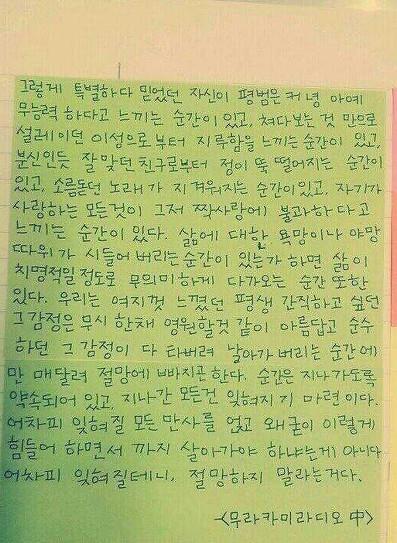 그렇게 특별하다 믿었던 자신이 평범은커녕 아예
무능력 하다고 느끼는 순간이 있고, 쳐다보는 것 만으로
설레이던 이성으로부터 지루함을 느끼는 순간이 있고,
분신인듯 잘 맞던 친구로부터 정이 뚝 떨어지는 순간이
있고, 소름돋던 노래가 지겨워지는 순간이 있고, 자기가
사랑하는 모든것이 그저 짝사랑에 불과하다고
느끼는 순간이 있다. 삶에 대한 욕망이나 야망
따위가 시들어 버리는 순간이 있는가 하면 삶이
치명적일 정도로 무의미하게 다가오는 순간 또한
있다. 우리는 여지껏 느꼈던 평생 간직하고 싶던
그 감정은 무시 한채 영원할것 같이 아름답고 순수
하던 그 감정이 다 타버려 날아가 버리는 순간에
만 매달려 절망에 빠지곤 한다. 순간은 지나가도록
약속되어 있고, 지나간 모든건 잊혀지기 마련이다.
어차피 잊혀질 모든 만사를 얹고 왜 굳이 이렇게
힘들어 하면서 까지 살아가야 하냐는게 아니다
어차피 잊혀질테니, 절망하지 말라는거다.
<무라카미라디오 中>